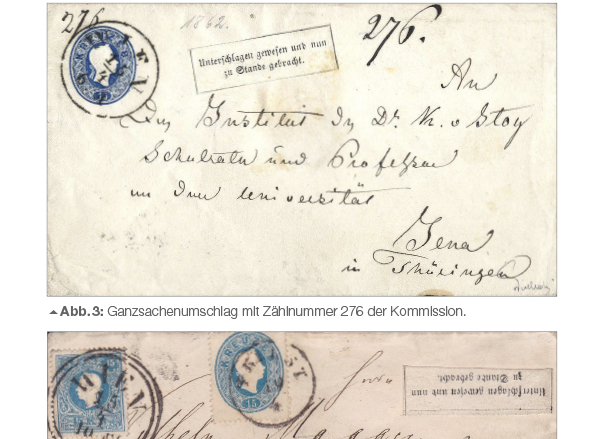 276
1862.
276.
WIEN
KREUZER
15
Unterschlagen gewesen und nun
zu Stande gebracht.
An
Das Institut des Dr. K. v Stoy
Schulrath und Professor
an der Universität
Jena
in Thüringen
Abb. 3: Ganzsachenumschlag mit Zählnummer 276 der Kommission.
WIEN
KREUZER
15
Herrn
Unterschlagen gewesen und nun
zu Stande gebracht.